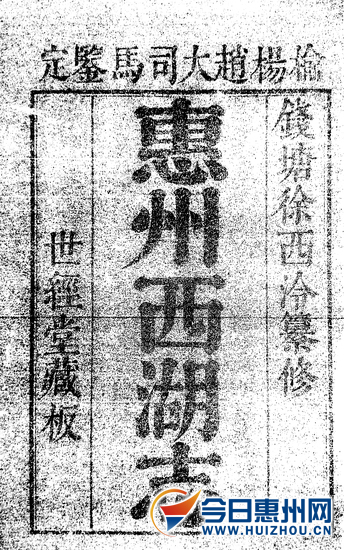 榆楊趙大司馬鑒定
錢塘徐西泠纂修
惠州西湖志
世經堂藏板
今日惠州网
WWW.HUIZHOU.CN